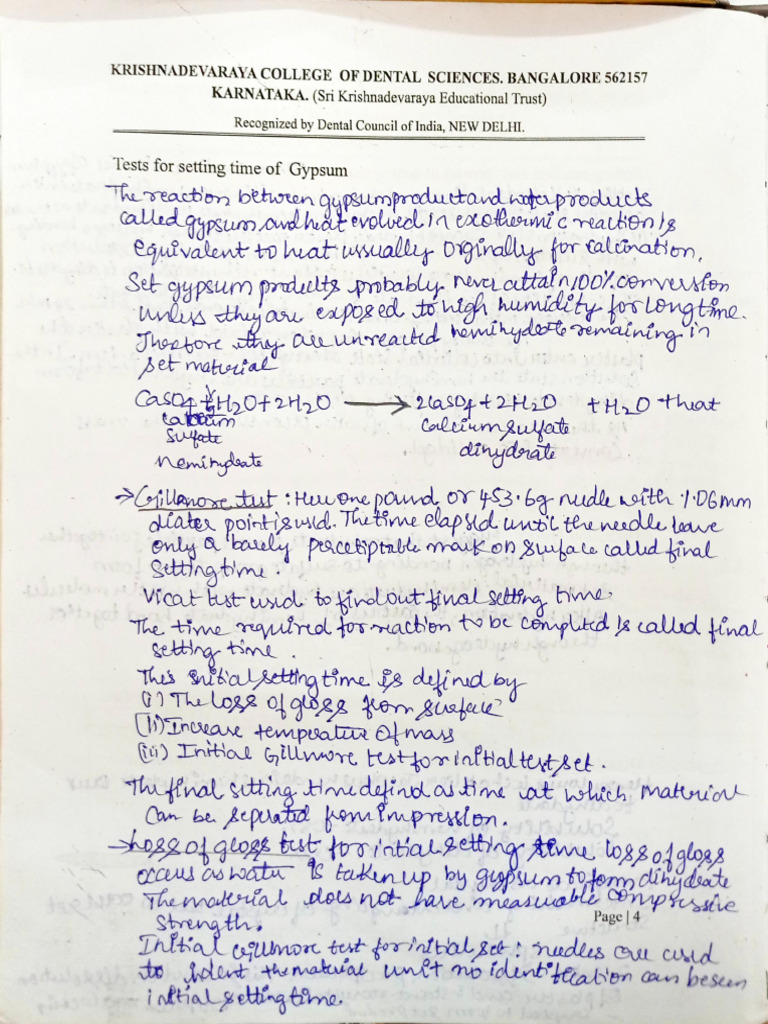 KRISHNADEVARAYA COLLEGE OF DENTAL SCIENCES. BANGALORE 562157
KARNATAKA. (Sri Krishnadevaraya Educational Trust)
Recognized by Dental Council of India, NEW DELHI.
Tests for setting time of Gypsum
The reaction between gypsum product and water products
called gypsum, and heat evolved in exothermic reaction is
equivalent to heat ussually orginally for calcination.
Set gypsum products probably never attain 100% conversion
unless they are exposed to high humidity for long time.
Therfore they are unreacted hemihydrate remaining in
set material
CaSO4 + ½H2O + 2H2O → 2CaSO4 + 2H2O + H2O + heat
calcium calcium sulfate
Sulfate dihydrate
Hemihydrate
→ Gillmore test: Here one pound or 453.6g needle with 1.06mm
diater point is used. The time elapsed until the needle leave
only a barely perceptiptable mark on surface called final
Setting time.
Vicat test used to find out final setting time.
The time required for reaction to be completed is called final
setting time.
This initial setting time is defined by
(i) The loss of gloss from surface
(ii) Increase temperature of mass
(iii) Initial Gillmore test for initial test set.
The final setting time defind as time at which material
Can be seperated from impression.
→ Loss of gloss test for intial setting time loss of gloss
occus as water is taken up by gypsum to form dihydrate
The material does not have measurable compressive
Page | 4
strength.
Initial Gillmore test for initial set: needles are used
to ident the material unit no identification can be seen
initial setting time.